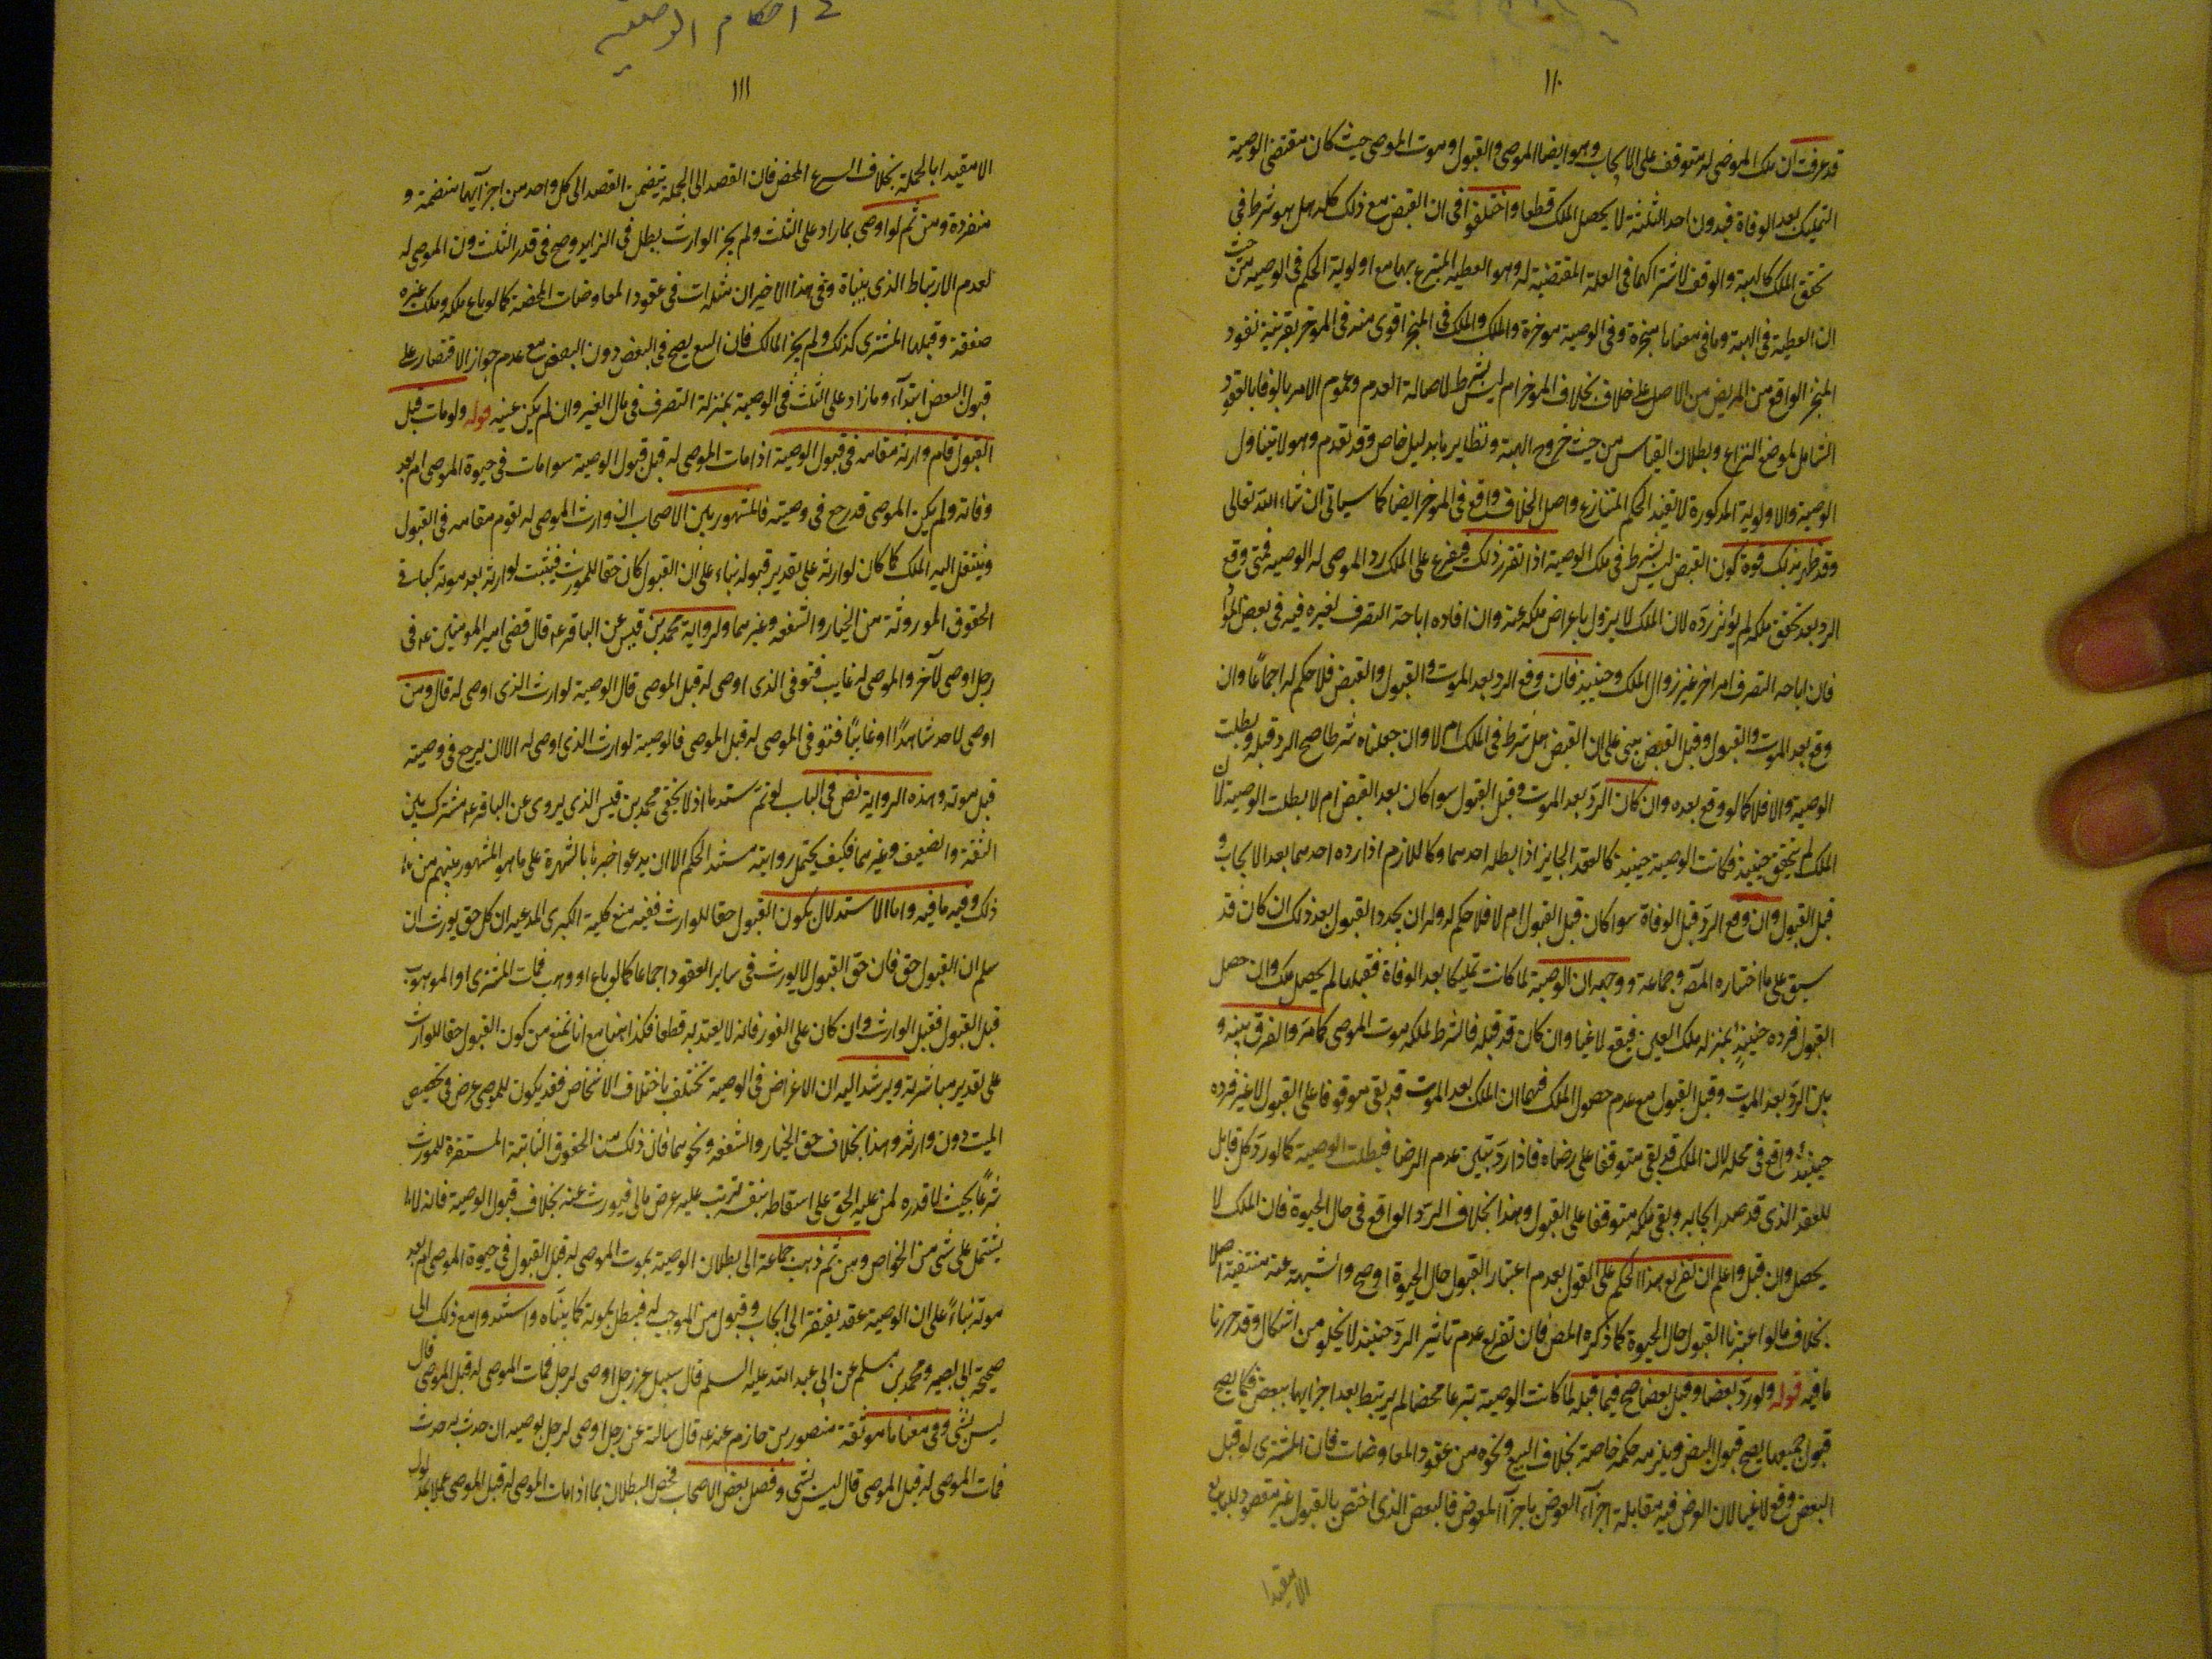 ١١٠
قد عرفت ان ملك الموصى له متوقف على الايجاب وهو ايضا الموصى والقبول وموت الموصى حيث كان مقتضى الوصية
التمليك بعد الوفاة فبدون احد الثلثة لا يحصل الملك قطعا واختلفوا فى ان القبض مع ذلك كله هل هو شرط فى
تحقق الملك كالهبة والوقف لاشتراكهما فى العلة المقتضية له وهو العطية المتبرع بها مع اولوية الحكم فى الوصية من حيث
ان العطية فى الهبة وما فى معناها منجزة وفى الوصية موخرة والملك والملك فى المنجز اقوى منه فى الموخر بقرينة نفوذ
المنجز الواقع من المريض من الاصل على خلاف بخلاف الموخر ام ليس بشرط لاصالة العدم وعموم الامر بالوفا بالعقود
الشامل لموضع النزاع وبطلان القياس من حيث خروج الهبة ونظايرها بدليل خاص وقد تقدم وهو لا يتناول
الوصية والاولوية المذكورة لا تفيد الحكم المتنازع واصل الخلاف واقع فى الموخر ايضا كما سياتى ان شاء الله تعالى
وقد ظهر بذلك قوة كون القبض ليس بشرط فى ملك الوصية اذا تقرر ذلك فيفرع على الملك رد الموصى له الوصية فمتى وقع
الرد بعد تحقق ملكه لم يوثر رده لان الملك لا يزول باعراض ملكه عنه وان افاده اباحة التصرف لغيره فيه فى بعض الموا
فان اباحة التصرف امر اخر غير زوال الملك وحينيذ فان وقع الرد بعد الموت والقبول والقبض فلا حكم له اجماعا وان
وقع بعد الموت والقبول وقبل القبض بنى على ان القبض هل شرط فى الملك ام لا وان جعلناه شرطا صح الرد قبله وبطلت
الوصية والا فلا كما لو وقع بعده وان كان الرد بعد الموت وقبل القبول سوا كان بعد القبض ام لا بطلت الوصية لان
الملك لم يتحقق حينيذ فكانت الوصية حينيذ كالعقد الجايز اذا ابطله احدهما وكاللازم اذا رده احدهما بعد الايجاب و
قبل القبول وان وقع الرد قبل الوفاة سوا كان قبل القبول ام لا فلا حكم له وله ان يجدد القبول بعد ذلك ان كان قد
سبق على ما اختاره المص وجماعة ووجهه ان الوصية لما كانت تمليكا بعد الوفاة فقبلها لم يحصل ملك وان حصل
القبول فرده حينيذ بمنزله ملك العين فيقع لاغيا وان كان قد قبله فالشرط لملكه موت الموصى كما مر والفرق بينه و
بين الرد بعد الموت وقبل القبول مع عدم حصول الملك فيهما ان الملك بعد الموت قد بقى موقوفا على القبول لا غير فرده
حينيذ واقع فى محله لان الملك قد بقى متوقفا على رضاه فاذا رد تبين عدم الرضا فبطلت الوصية كما لو رد كل قابل
للعقد الذى قد صدر ايجابه وبقى ملكه متوقفا على القبول وهذا بخلاف الرد الواقع فى حال الحيوة فان الملك لا
يحصل وان قبل واعلم ان تفريع هذا الحكم على القول بعدم اعتبار القبول حال الحيوة اوضح والشبهة عنه منتفية اصلا
بخلاف ما لو اعتبرنا القبول حال الحيوة كما ذكره المص فان تفريع عدم تاثير الرد حينيذ لا يخلو من اشكال وقد حررنا
ما فيه قوله ولو رد بعضا وقبل بعضا صح فيما قبله لما كانت الوصية تبرعا محضا لم يرتبط بعد اجزايها ببعض فكما يصح
قبول جميعها يصح قبول البعض ويلزمه حكمه خاصة بخلاف البيع ونحوه من عقود المعاوضات فان المشترى لو قبل
البعض وقع لاغيا لان الوض فيه مقابلة اجزاء العوض باجزا المعوض فالبعض الذى اختص بالقبول غير مقصود للبايع
الا مقيدا
فى احكام الوصية
١١١
الا مقيدا بالجملة بخلاف التبرع المحض فان القصد الى الجملة يتضمن القصد الى كل واحد من اجزايها منضمة و
منفردة ومن ثم لو اوصى بما زاد على الثلث ولم يجز الوارث بطل فى الزايد وصح فى قدر الثلث وان الموصى له
لعدم الارتباط الذى بيناه وفى هذا الاخير ان مثله ات فى عقود المعاوضات المحضة كما لو باع ملكه وملك غيره
صفقة وقبلها المشترى كذلك ولم يجز المالك فان البيع يصح فى البعض دون البعض مع عدم جواز الاقتصار على
قبول البعض ابتداء وما زاد على الثلث فى الوصية بمنزلة التصرف فى مال الغير وان لم يكن عينه قوله ولو مات قبل
القبول قام وارثه مقامه فى قبول الوصية اذا مات الموصى له قبل قبول الوصية سوا مات فى حيوة الموصى ام بعد
وفاته ولم يكن الموصى قد رجع فى وصيته فالمشهور بين الاصحاب ان وارث الموصى له يقوم مقامه فى القبول
وينتقل اليه الملك كما كان لوارثه على تقدير قبوله بناء على ان القبول كان حقا للمورث فيثبت لوارثه بعد موته كباقى
الحقوق الموروثة من الخيار والشفعه وغيرهما ولرواية محمد بن قيس عن الباقر ع قال قضى امير المومنين ع فى
رجل اوصى لاخر والموصى له غايب فتوفى الذى اوصى له قبل الموصى قال الوصية لوارث الذى اوصى له قال ومن
اوصى لاحد شاهدا او غائبا فتوفى الموصى له قبل الموصى فالوصية لوارث الذى اوصى له الا ان يرجع فى وصيته
قبل موته وهذه الرواية نص فى الباب لو تم سندها اذ لا يخفى محمد بن قيس الذى يروى عن الباقر ع مشترك بين
الثقة والضعيف وغيرهما فكيف يحتمل روايته مستند الحكم الا ان يدعوا خبرها بالشهرة على ما هو المشهور بينهم من
ذلك وفيه ما فيه واما الاستدلال بكون القبول حقا للوارث ففيه منع كلية الكبرى المدعية ان كل حق يورث ان
سلم ان القبول حق فان حق القبول لا يورث فى ساير العقود اجماعا كما لو باع او وهب فمات المشترى او الموهوب
قبل القبول فقبل الوارث وان كان على الفور فانه لا يعتد به قطعا فكذا هنا مع انا نمنع من كون القبول حقا للوارث
على تقدير مباشرته ويرشد اليه ان الاغراض فى الوصية تختلف باختلاف الاشخاص فقد يكون للموصى غرض فى تخصيص
الميت دون وارثه وهذا بخلاف حق الخيار والشفعه ونحوهما فان ذلك من الحقوق الثابتة المستقرة للمورث
شرعا بحيث لا قدره لمن عليه الحق على اسقاطه بنفسه ترتب عليه غرض مالى فيورث عنه بخلاف قبول الوصية فانه لا
يشتمل على شى من الخواص ومن ثم ذهب جماعة الى بطلان الوصية بموت الموصى له قبل القبول فى حيوة الموصى ام بعد
موته بناء على ان الوصية عقد يفتقر الى ايجاب وقبول من الموجب له فيبطل بموته كما بيناه واستندوا مع ذلك الى
صحيحة ابى بصير ومحمد بن مسلم عن ابى عبد الله عليه السلم قال سيل عن رجل اوصى لرجل فمات الموصى له قبل الموصى قال
ليس بشى وفى معناها موثقة منصور بن حازم عنه ع قال سالته عن رجل اوصى لرجل بوصية ان حدث به حدث
فمات الموصى له قبل الموصى قال ليس بشى وفصل بعض الاصحاب فخص البطلان بما اذا مات الموصى له قبل الموصى عملا